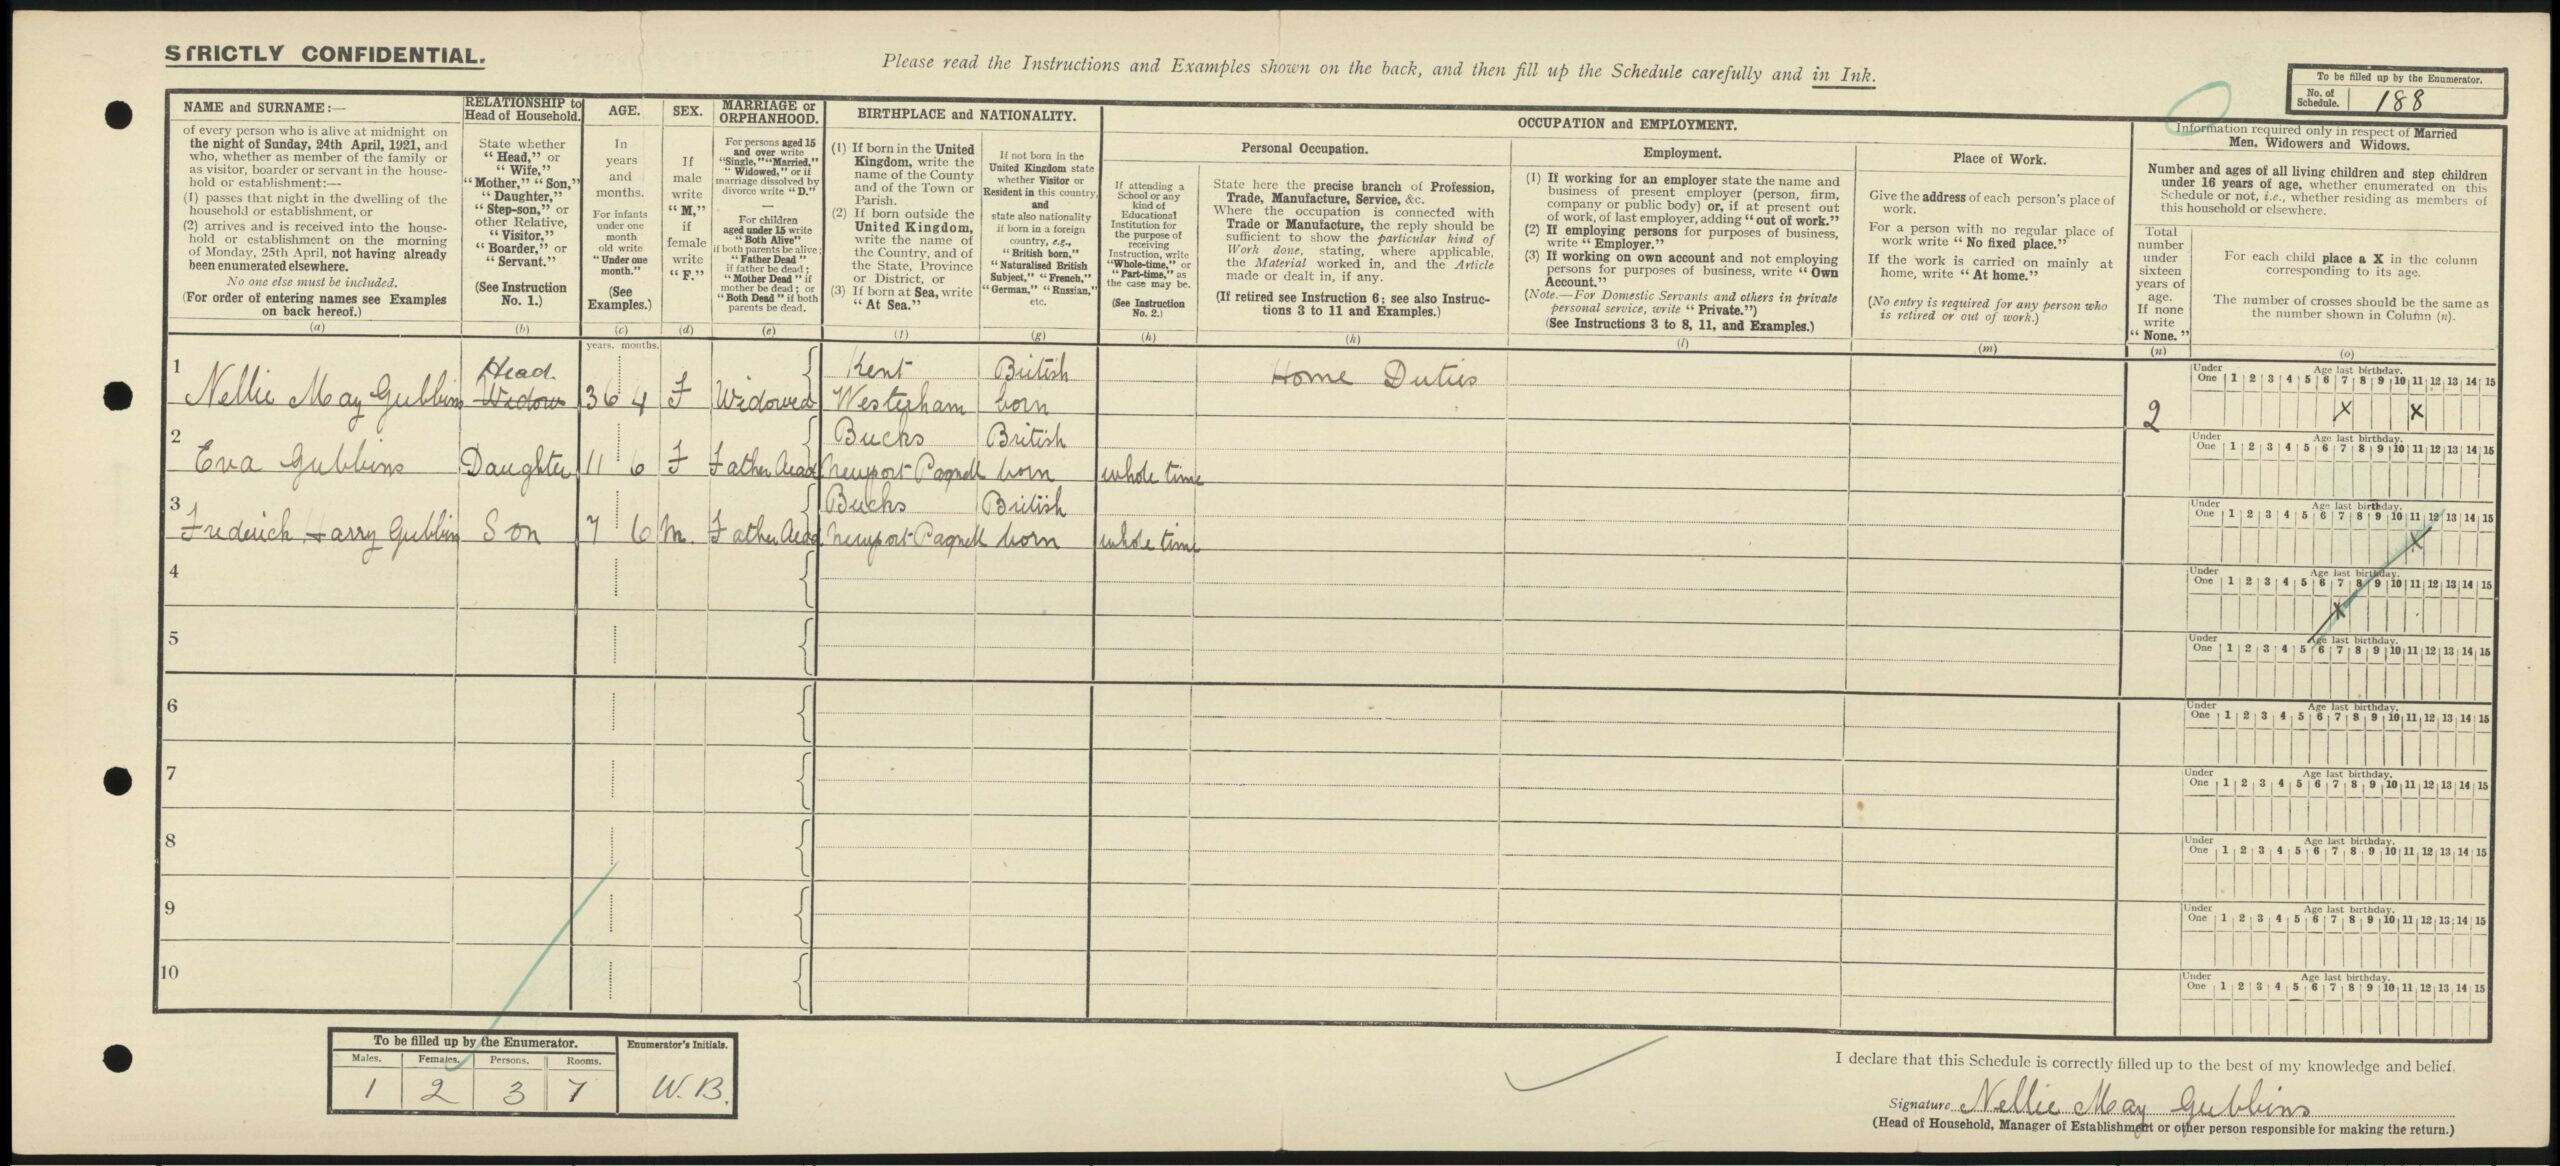 STRICTLY CONFIDENTIAL.
Please read the Instructions and Examples shown on the back, and then fill up the Schedule carefully and in Ink.
To be filled up by the Enumerator.
No. of Schedule. 188
NAME and SURNAME:—
of every person who is alive at midnight on
the night of Sunday, 24th April, 1921, and
who, whether as member of the family or
as visitor, boarder or servant in the house-
hold or establishment:—
(1) passes that night in the dwelling of the
household or establishment, or
(2) arrives and is received into the house-
hold or establishment on the morning
of Monday, 25th April, not having already
been enumerated elsewhere.
No one else must be included.
(For order of entering names see Examples
on back hereof.)
(a)
RELATIONSHIP to
Head of Household.
State whether
"Head," or
"Wife,"
"Mother," "Son,"
"Daughter,"
"Step-son," or
other Relative,
"Visitor,"
"Boarder," or
"Servant."
(See Instruction
No. 1.)
(b)
AGE.
In
years
and
months.
For infants
under one
month
old write
"Under one
month."
(See
Examples.)
(c)
years. months.
SEX.
If
male
write
"M,"
if
female
write
"F."
(d)
MARRIAGE or
ORPHANHOOD.
For persons aged 15
and over write
"Single," "Married,"
"Widowed," or if
marriage dissolved by
divorce write "D."
—
For children
aged under 15 write
"Both Alive"
if both parents be alive;
"Father Dead"
if father be dead;
"Mother Dead" if
mother be dead; or
"Both Dead" if both
parents be dead.
(e)
BIRTHPLACE and NATIONALITY.
(1) If born in the United
Kingdom, write the
name of the County
and of the Town or
Parish.
(2) If born outside the
United Kingdom,
write the name of
the Country, and of
the State, Province
or District, or
(3) If born at Sea, write
"At Sea."
(f)
If not born in the
United Kingdom state
whether Visitor or
Resident in this country,
and
state also nationality
if born in a foreign
country, e.g.,
"British born,"
"Naturalised British
Subject," "French,"
"German," "Russian,"
etc.
(g)
OCCUPATION and EMPLOYMENT.
If attending a
School or any
kind of
Educational
Institution for
the purpose of
receiving
Instruction, write
"Whole-time," or
"Part-time," as
the case may be.
(See Instruction
No. 2.)
(h)
Personal Occupation.
State here the precise branch of Profession,
Trade, Manufacture, Service, &c.
Where the occupation is connected with
Trade or Manufacture, the reply should be
sufficient to show the particular kind of
Work done, stating, where applicable,
the Material worked in, and the Article
made or dealt in, if any.
(If retired see Instruction 6; see also Instruc-
tions 3 to 11 and Examples.)
(k)
Employment.
(1) If working for an employer state the name and
business of present employer (person, firm,
company or public body) or, if at present out
of work, of last employer, adding "out of work."
(2) If employing persons for purposes of business,
write "Employer."
(3) If working on own account and not employing
persons for purposes of business, write "Own
Account."
(Note.—For Domestic Servants and others in private
personal service, write "Private.")
(See Instructions 3 to 8, 11, and Examples.)
(l)
Place of Work.
Give the address of each person's place of
work.
For a person with no regular place of
work write "No fixed place."
If the work is carried on mainly at
home, write "At home."
(No entry is required for any person who
is retired or out of work.)
(m)
Information required only in respect of Married
Men, Widowers and Widows.
Number and ages of all living children and step children
under 16 years of age, whether enumerated on this
Schedule or not, i.e., whether residing as members of
this household or elsewhere.
Total
number
under
sixteen
years of
age.
If none
write
"None."
(n)
For each child place a X in the column
corresponding to its age.
The number of crosses should be the same as
the number shown in Column (n).
(o)
1 Nellie May Gubbins Head. Widow 36 4 F Widowed Kent Westerham British born Home Duties 2
Under One Age last birthday. 1 2 3 4 5 6 7 8 9 10 11 12 13 14 15
X X
2 Eva Gubbins Daughter 11 6 F Father dead Bucks Newport Pagnell British born whole time
Under One Age last birthday. 1 2 3 4 5 6 7 8 9 10 11 12 13 14 15
3 Frederick Harry Gubbins Son 7 6 M. Father dead Bucks Newport Pagnell British born whole time
Under One Age last birthday. 1 2 3 4 5 6 7 8 9 10 11 12 13 14 15
X
4
Under One Age last birthday. 1 2 3 4 5 6 7 8 9 10 11 12 13 14 15
X
5
Under One Age last birthday. 1 2 3 4 5 6 7 8 9 10 11 12 13 14 15
6
Under One Age last birthday. 1 2 3 4 5 6 7 8 9 10 11 12 13 14 15
7
Under One Age last birthday. 1 2 3 4 5 6 7 8 9 10 11 12 13 14 15
8
Under One Age last birthday. 1 2 3 4 5 6 7 8 9 10 11 12 13 14 15
9
Under One Age last birthday. 1 2 3 4 5 6 7 8 9 10 11 12 13 14 15
10
Under One Age last birthday. 1 2 3 4 5 6 7 8 9 10 11 12 13 14 15
To be filled up by the Enumerator.
Males. Females. Persons. Rooms.
1 2 3 7
Enumerator's Initials.
W.B.
I declare that this Schedule is correctly filled up to the best of my knowledge and belief.
Signature Nellie May Gubbins
(Head of Household, Manager of Establishment or other person responsible for making the return.)